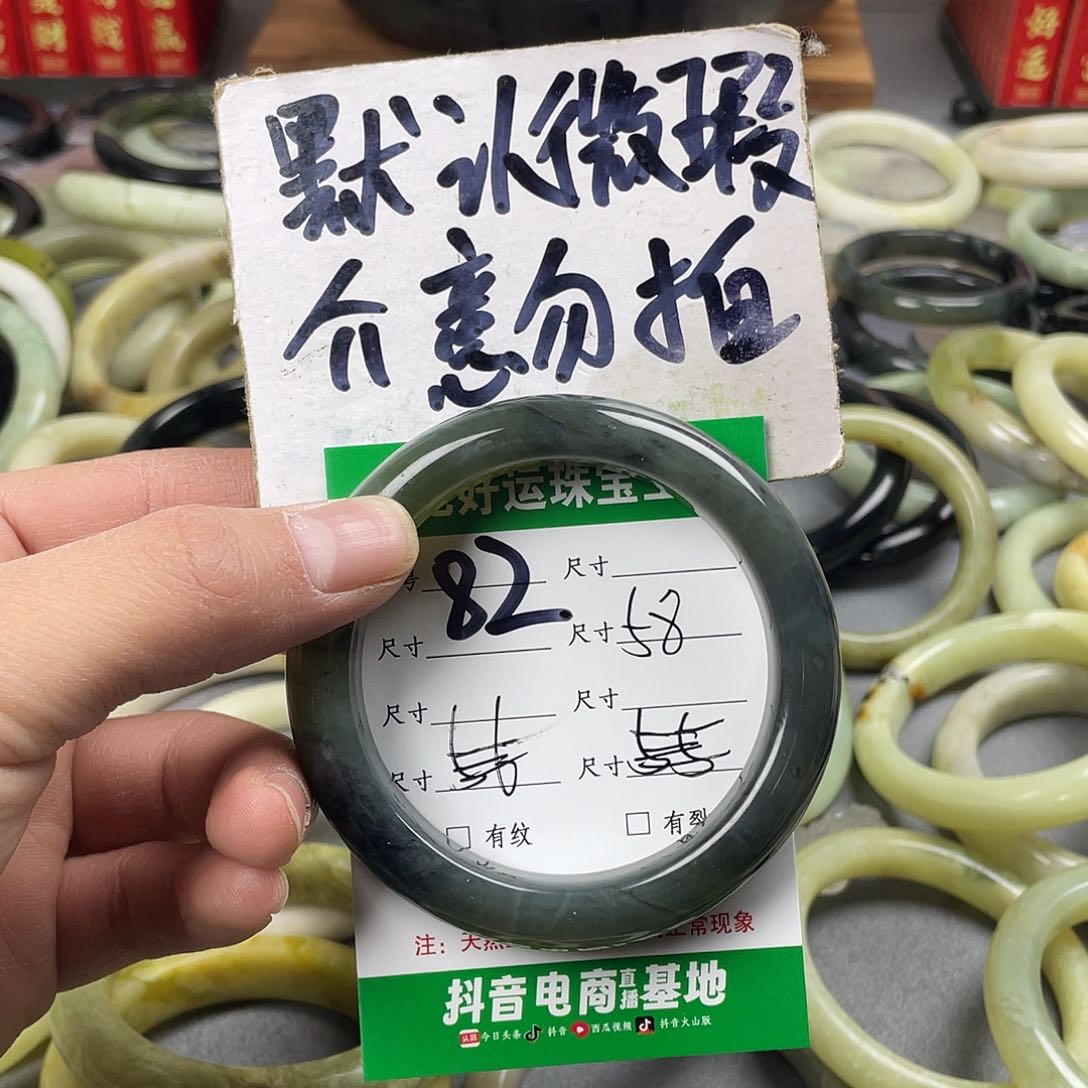 默认微瑕
介意勿拍
好运珠宝
号 82. 尺寸
尺寸 尺寸 58
尺寸 尺寸
尺寸 尺寸
□ 有纹 □ 有裂
注：天然 正常现象
抖音电商直播基地
头条 今日头条 抖音 西瓜视频 抖音火山版
好运